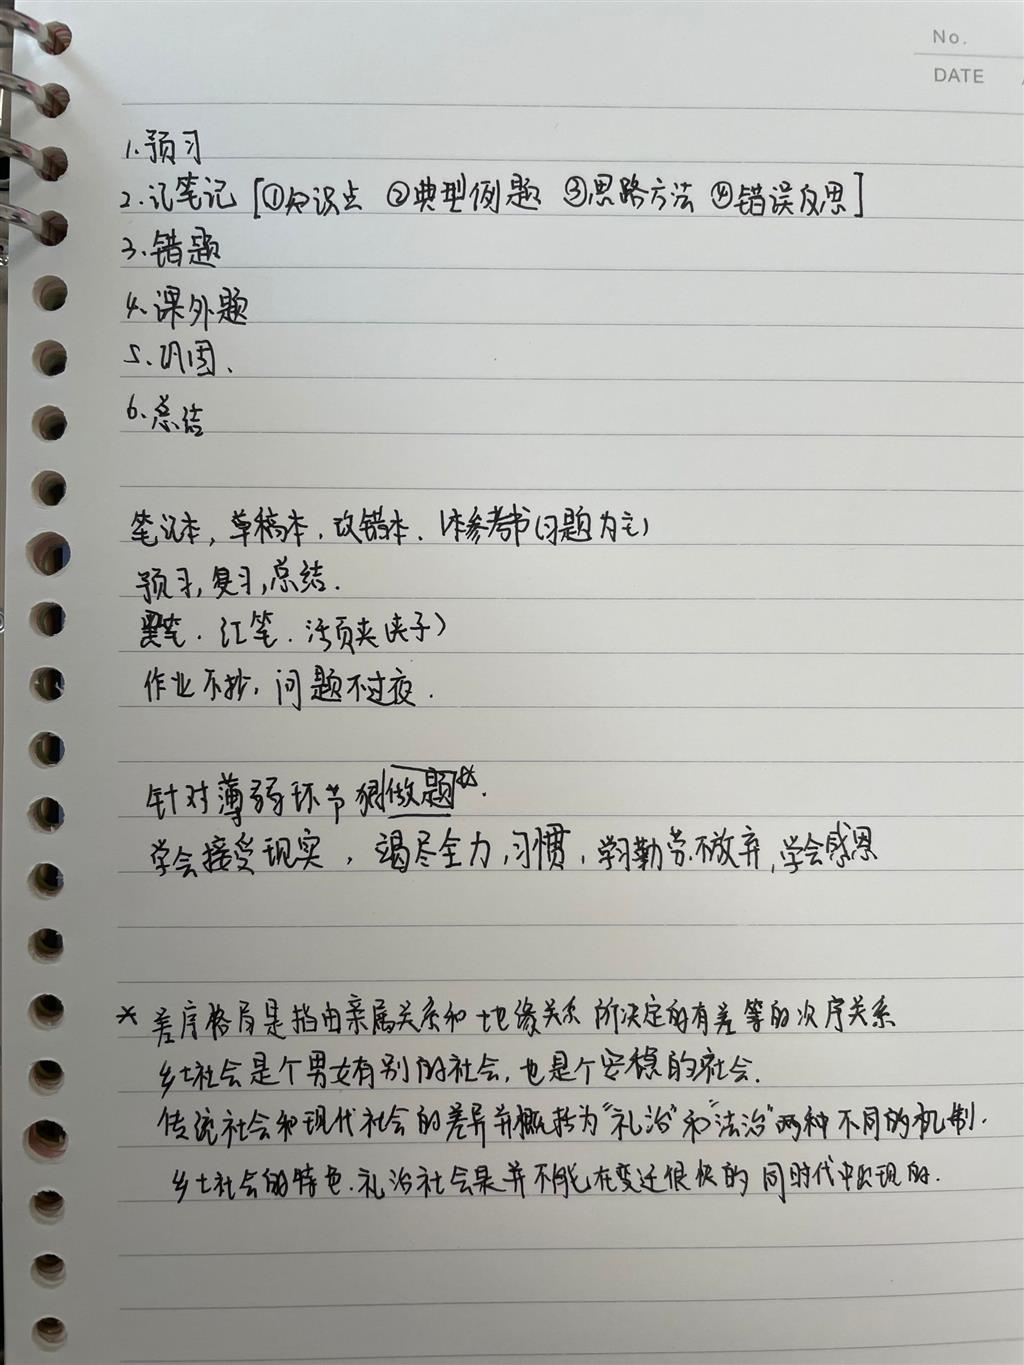 No.
DATE
1.预习
2.记笔记[①知识点 ②典型例题 ③思路方法 ④错误反思]
3.错题
4.课外题
5.巩固、
6.总结
笔记本,草稿本,改错本、1本参考书(习题为主)
预习,复习,总结.
黑笔.红笔.活页夹(夹子)
作业不抄,问题不过夜.
针对薄弱环节狠做题
学会接受现实,竭尽全力,习惯,学习勤劳.不放弃,学会感恩
*差序格局是指由亲属关系和地缘关系所决定的有差等的次序关系
乡土社会是个男女有别的社会,也是个安稳的社会.
传统社会和现代社会的差异并概括为"礼治"和"法治"两种不同的机制.
乡土社会的特色.礼治社会是并不能在变迁很快的同时代中出现的.